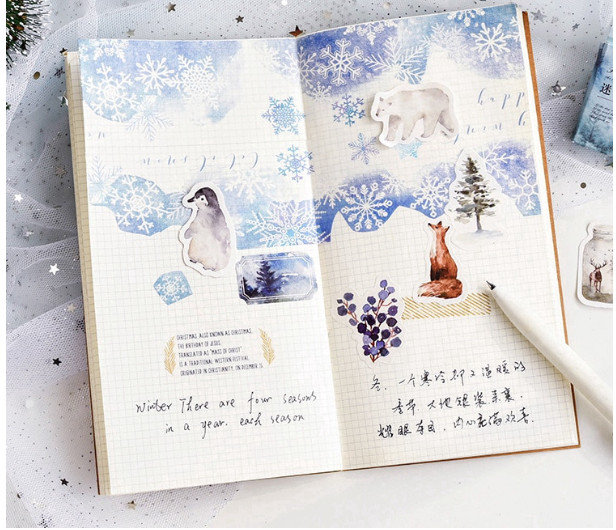 happ
CHRISTMAS, ALSO KNOWN AS CHRISTMAS,
THE BIRTHDAY OF JESUS,
TRANSLATED AS "MASS OF CHRIST"
IS A TRADITIONAL WESTERN FESTIVAL
ORIGINATED IN CHRISTIANITY, ON DECEMBER
Winter There are four seasons
in a year. each season
冬,一个寒冷却又温暖的
季节,大地银装素裹,
耀眼夺目,内心充满欢喜.
迷